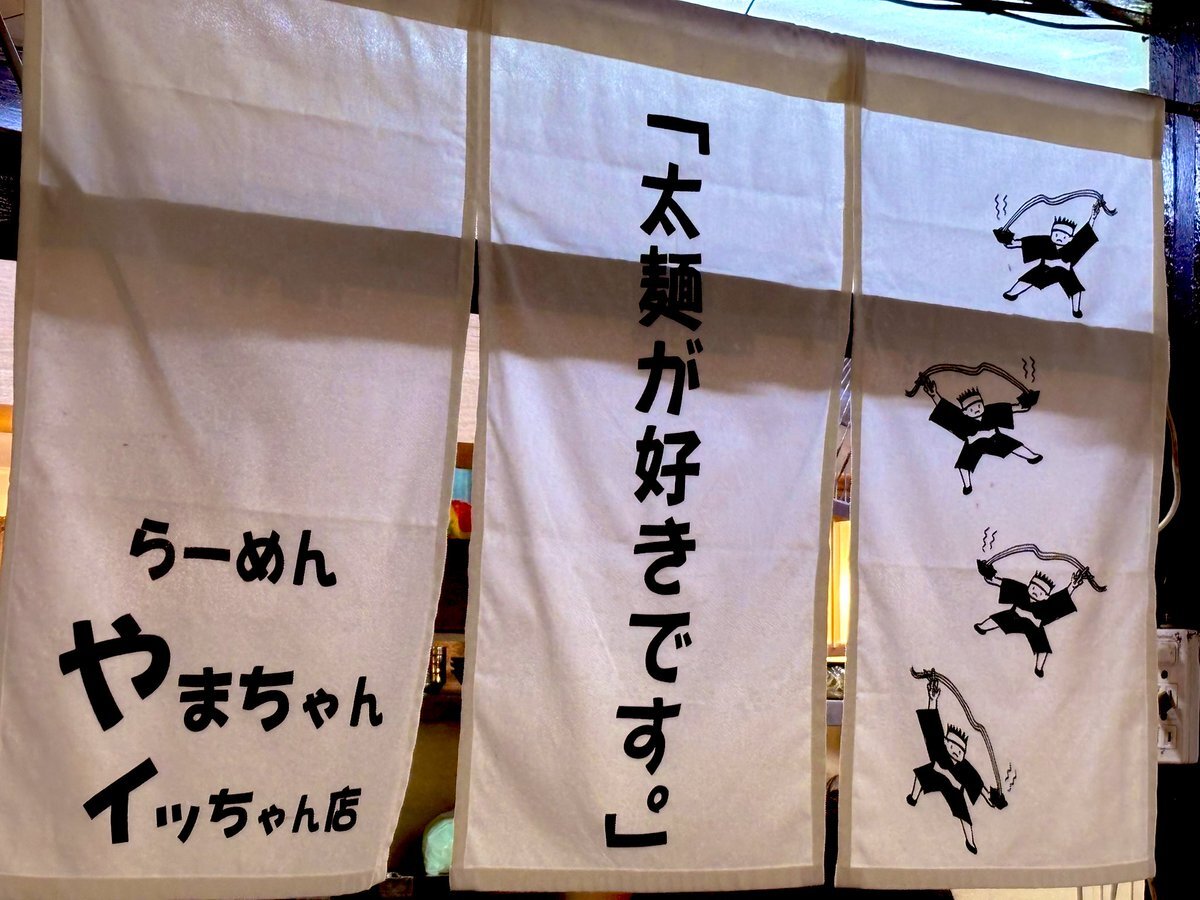 「太麺が好きです。」
らーめん
やまちゃん
イッちゃん店